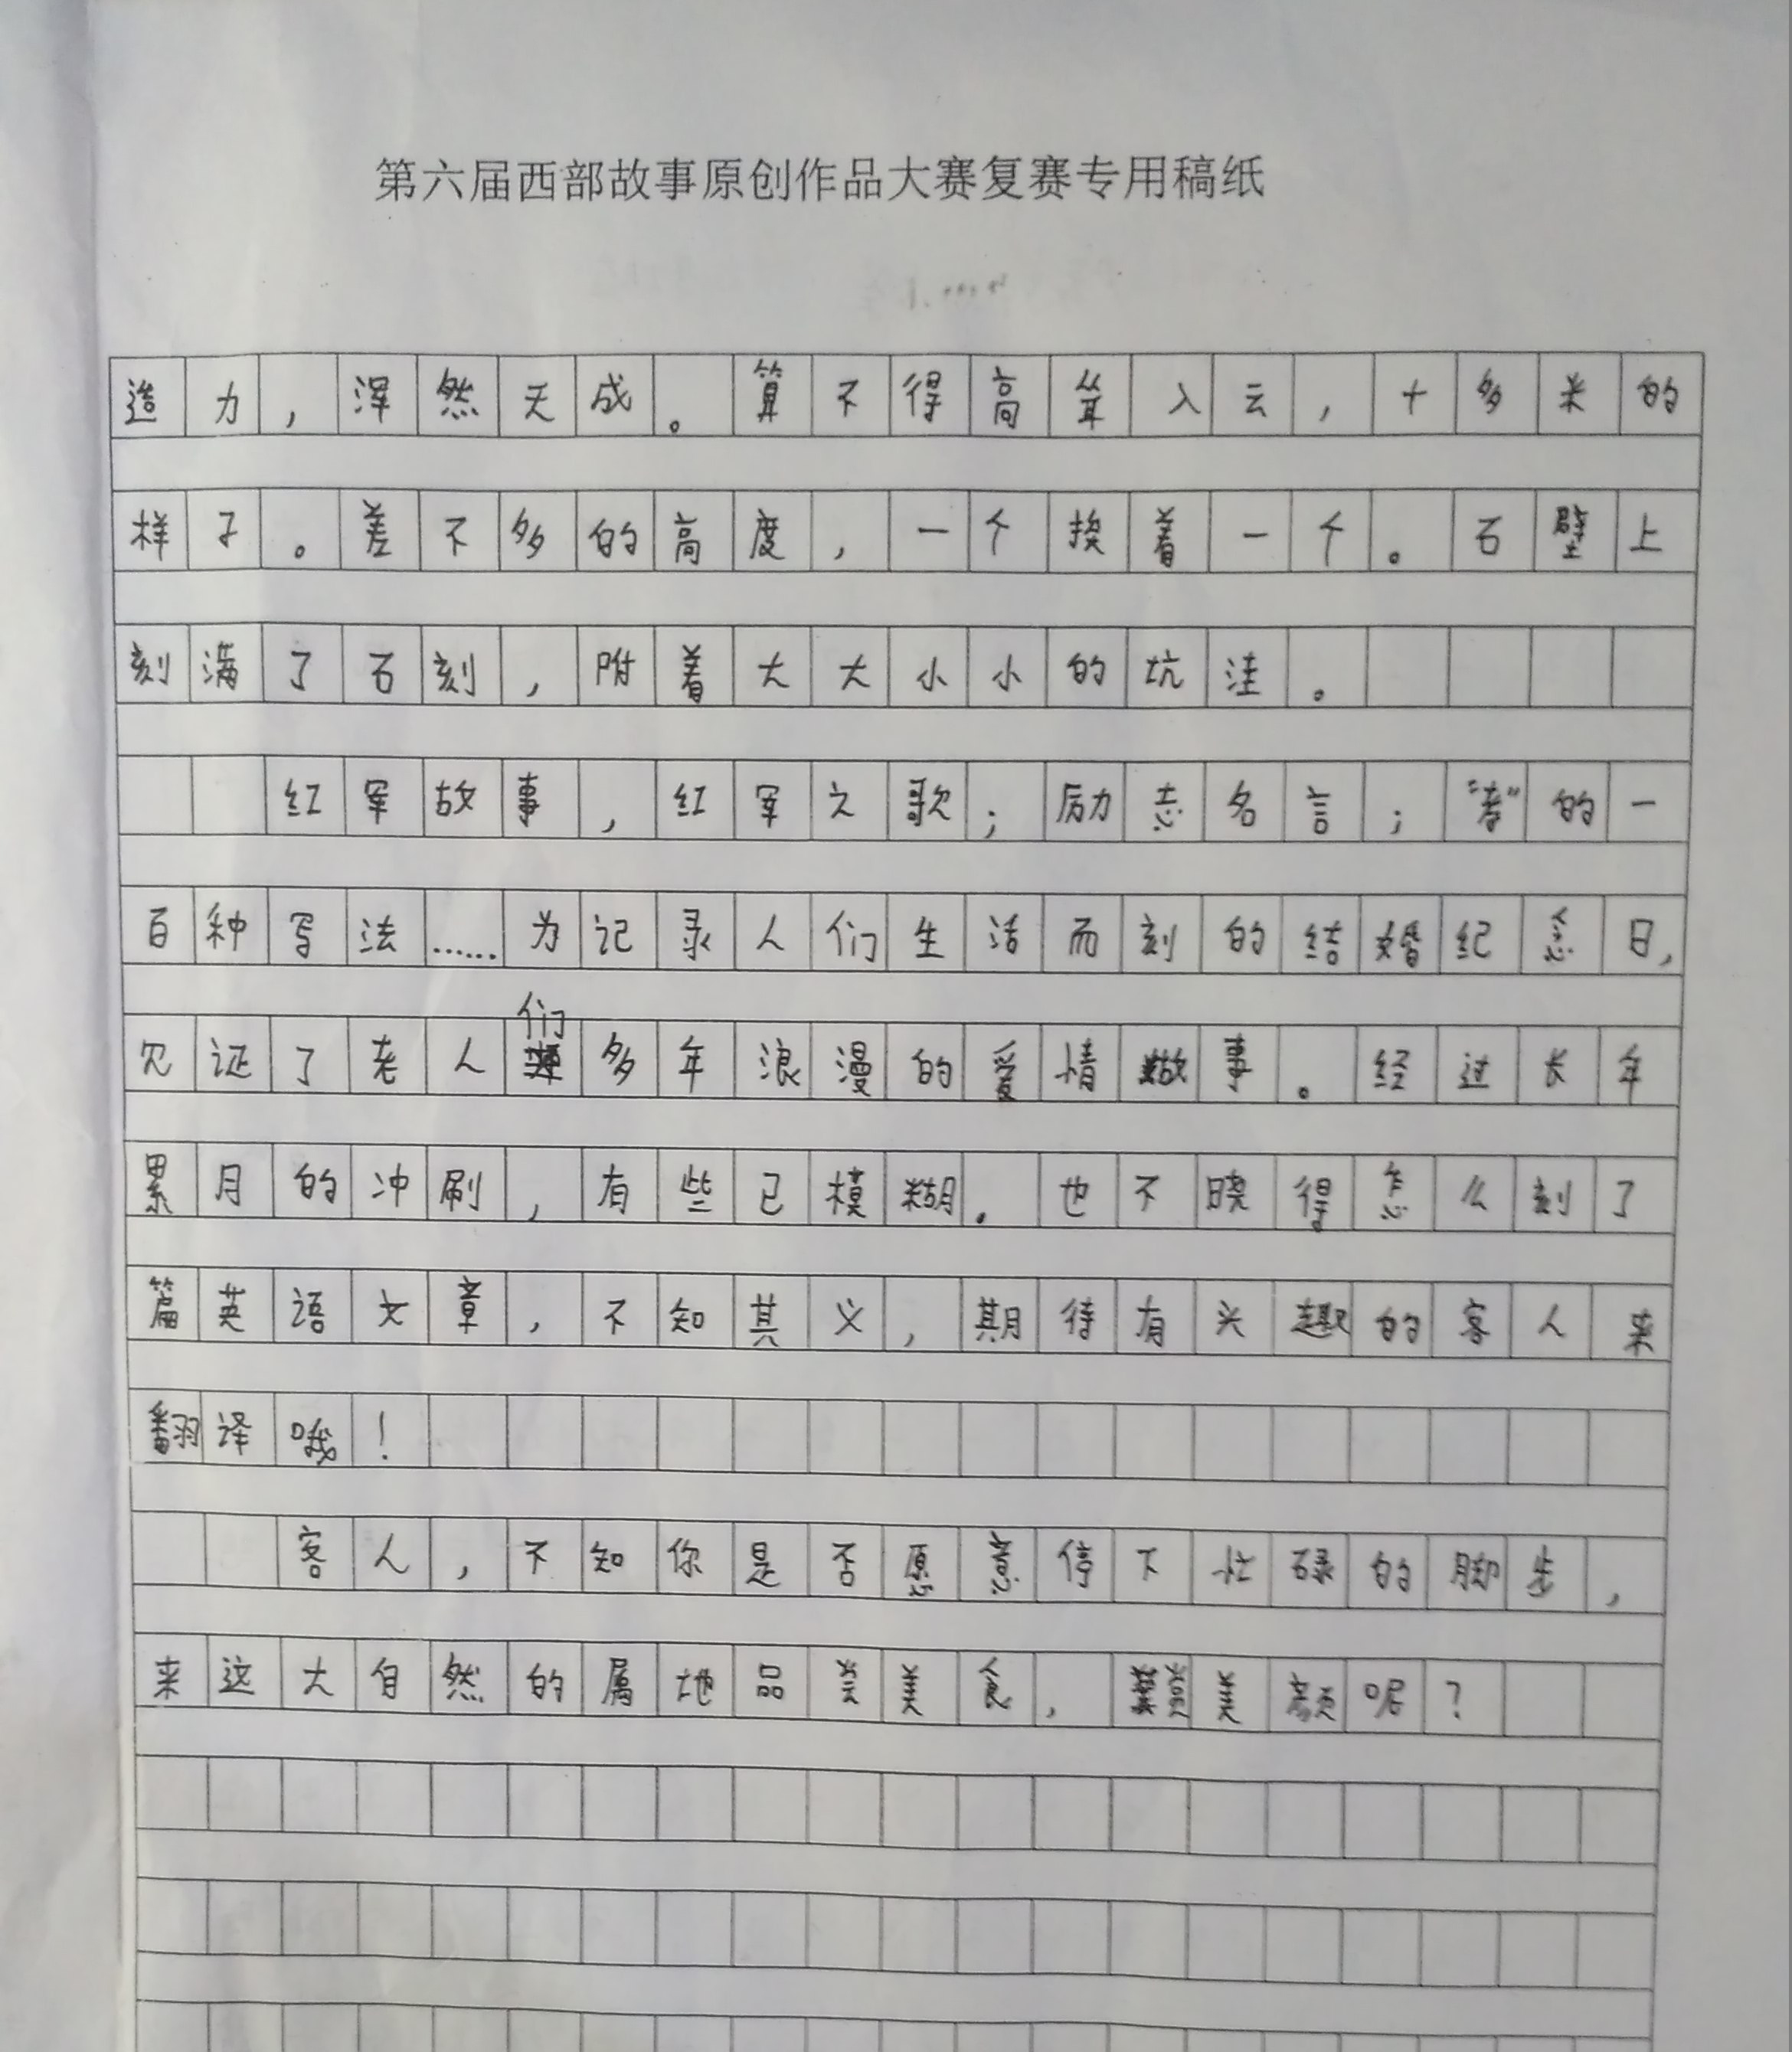 第六届西部故事原创作品大赛复赛专用稿纸
造力，浑然天成。算不得高耸入云，十多米的
样子。差不多的高度，一个挨着一个。石壁上
刻满了石刻，附着大大小小的坑洼。
红军故事，红军之歌；励志名言；“孝”的一
百种写法……为记录人们生活而刻的结婚纪念日，
见证了老人们多年浪漫的爱情故事。经过长年
累月的冲刷，有些已模糊。也不晓得怎么刻了
篇英语文章，不知其义，期待有兴趣的客人来
翻译哦！
客人，不知你是否愿意停下忙碌的脚步，
来这大自然的属地品尝美食，美颜呢？